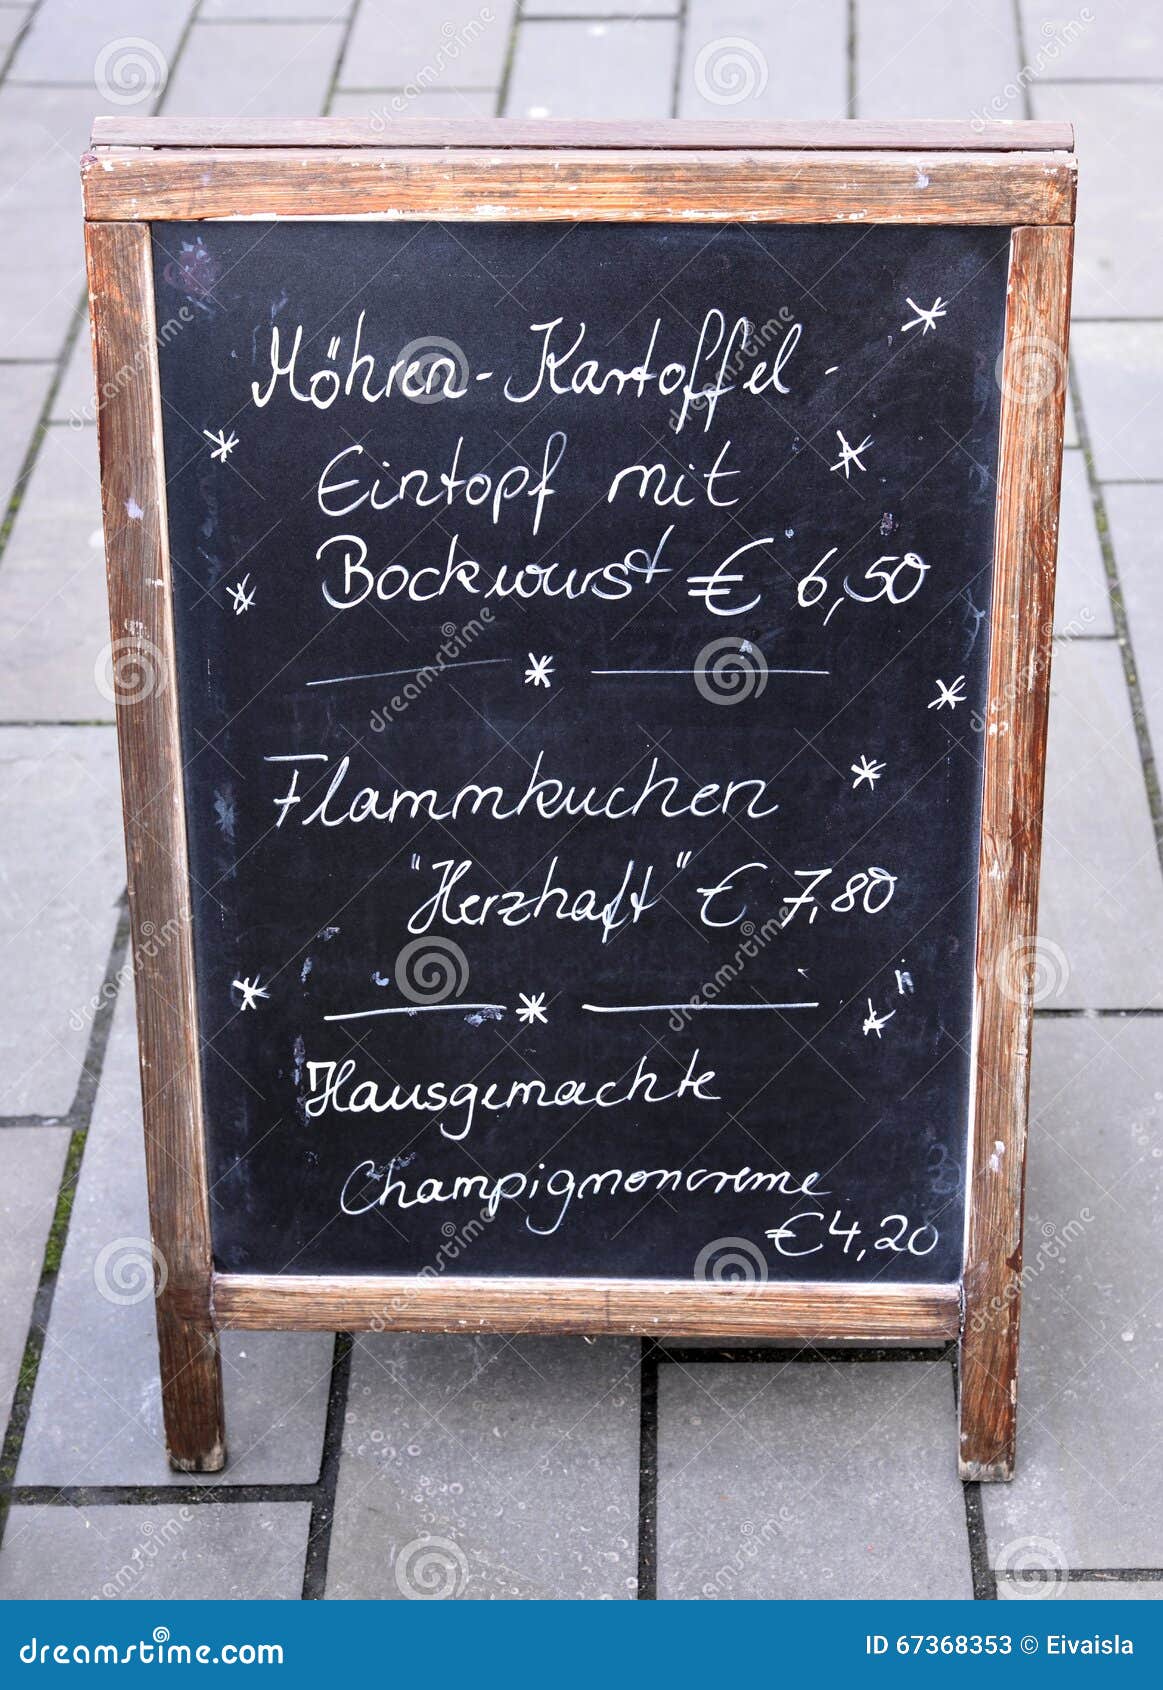 Möhren-Kartoffel-
Eintopf mit
Bockwurst € 6,50
Flammkuchen
"Herzhaft" € 7,80
Hausgemachte
Champignoncreme
€4,20
dreamstime.com
ID 67368353 © Eivaisla